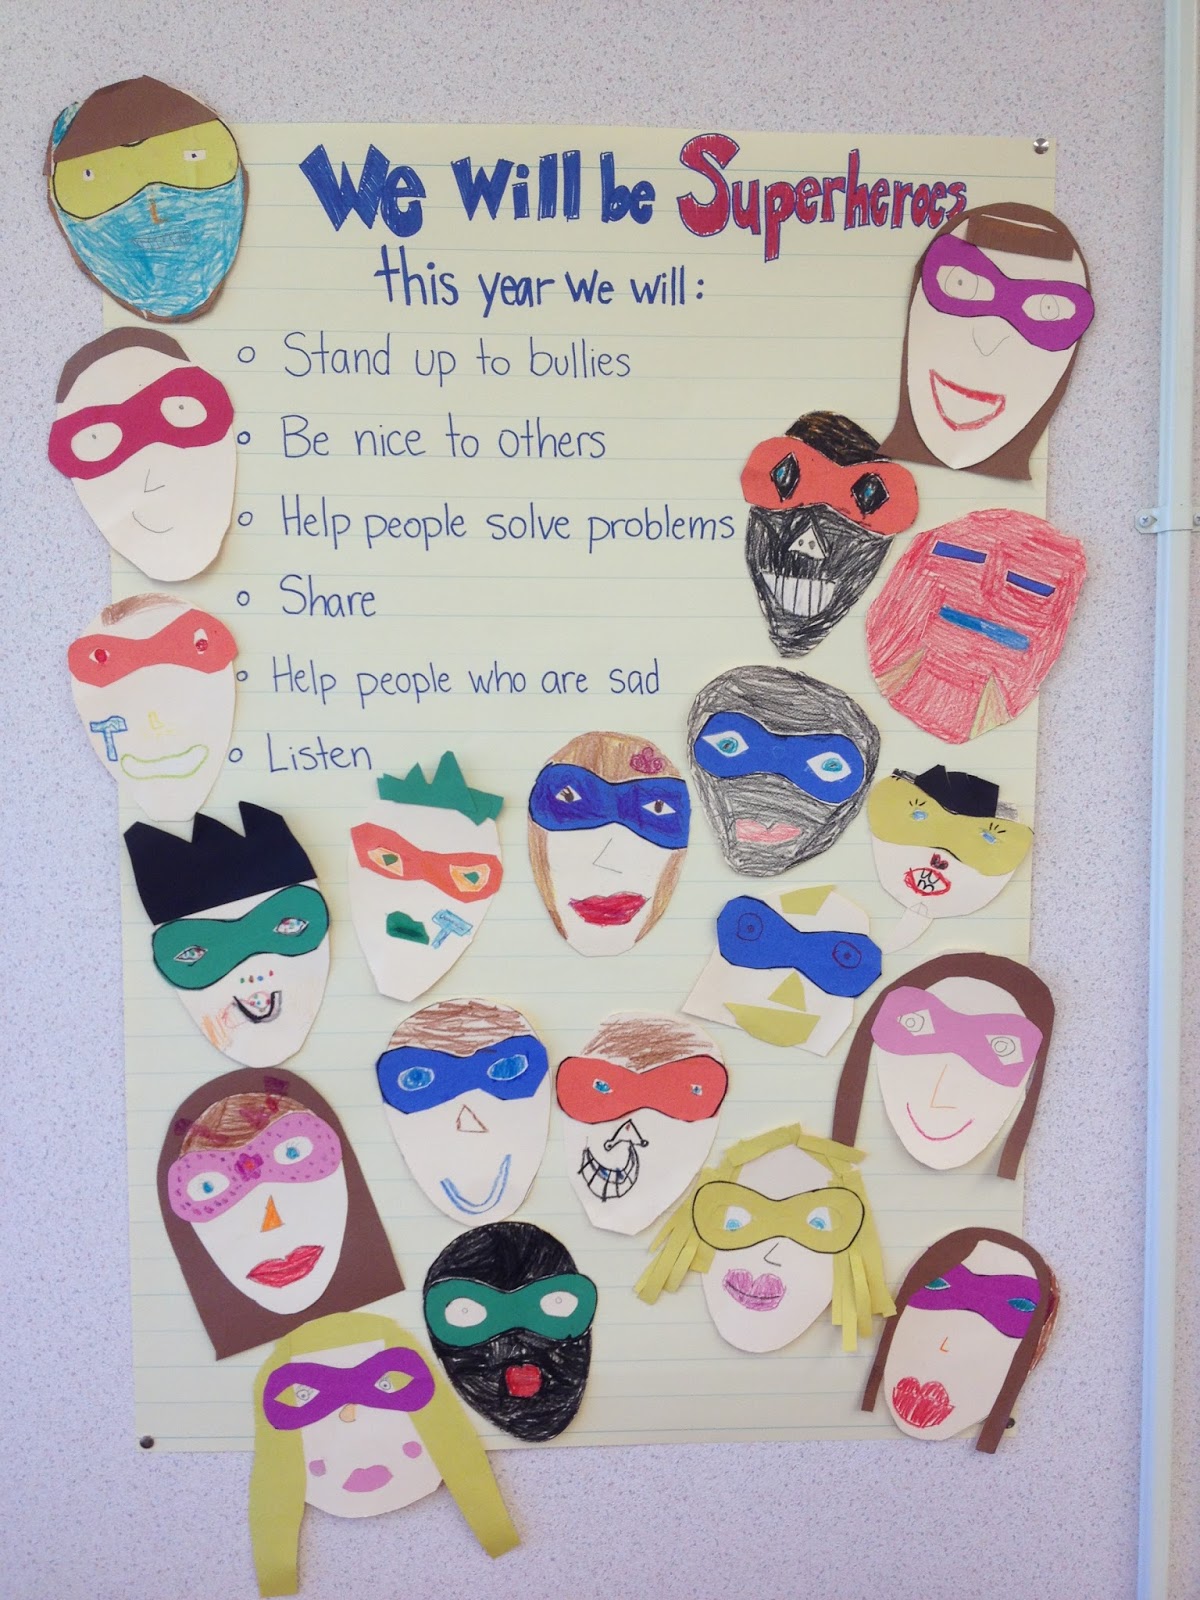 We Will be Superheroes
this year we will:
○ Stand up to bullies
○ Be nice to others
○ Help people solve problems
○ Share
○ Help people who are sad
○ Listen